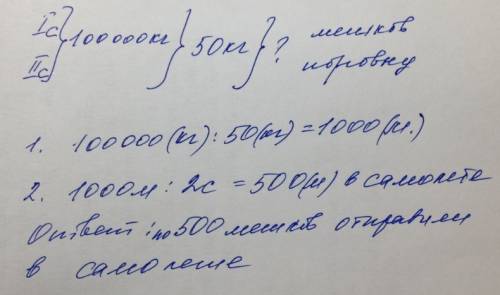 Iс } 100000кг } 50кг } ? мешков
IIс поровну
1. 100000(кг):50(кг)=1000(м.)
2. 1000м : 2с = 500(м) в самолете
Ответ: по 500 мешков отправили
в самолете